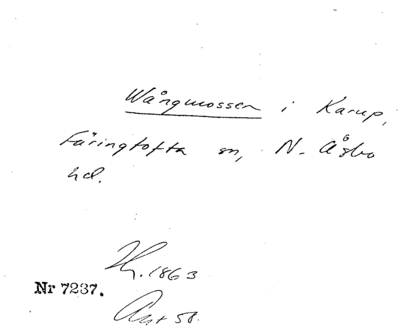 Wångmossen i Karup,
Färingtofta sn, N. Åsbo
hd.
1863
Nr 7237.
58.